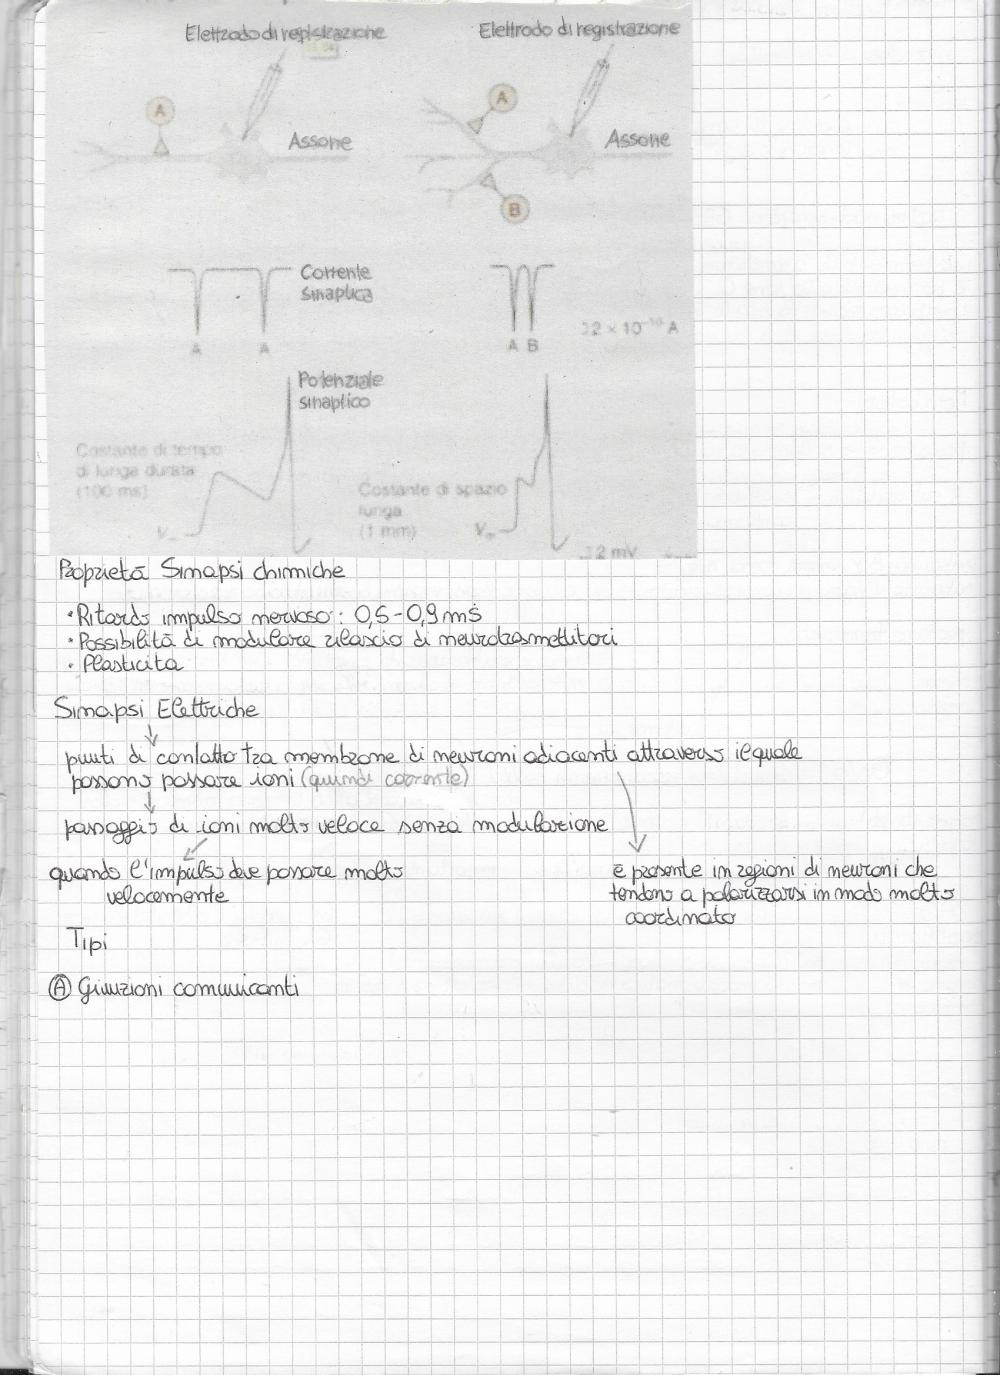 Elettrodo di registrazione
Elettrodo di registrazione
A
A
Assone
Assone
B
Corrente
sinaptica
2 × 10⁻¹⁰ A
A A
A B
Potenziale
sinaptico
Costante di tempo
di lunga durata
(100 ms)
Costante di spazio
lunga
(1 mm)
V
V
2 mV
Proprietà Sinapsi chimiche
• Ritardo impulso nervoso: 0,5-0,9 ms
• Possibilità di modulare rilascio di neurotrasmettitori
• Plasticita
Sinapsi Elettriche
punti di contatto tra membrane di neuroni adiacenti attraverso il quale
possono passare ioni (quindi corrente)
passaggio di ioni molto veloce senza modulazione
quando l'impulso deve passare molto
velocemente
è presente in regioni di neuroni che
tendono a polarizzarsi in modo molto
coordinato
Tipi
Ⓐ Giunzioni comunicanti